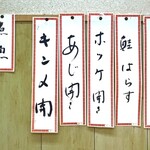 鮭はらす
ホッケ開き
あじ開き
キンメ開